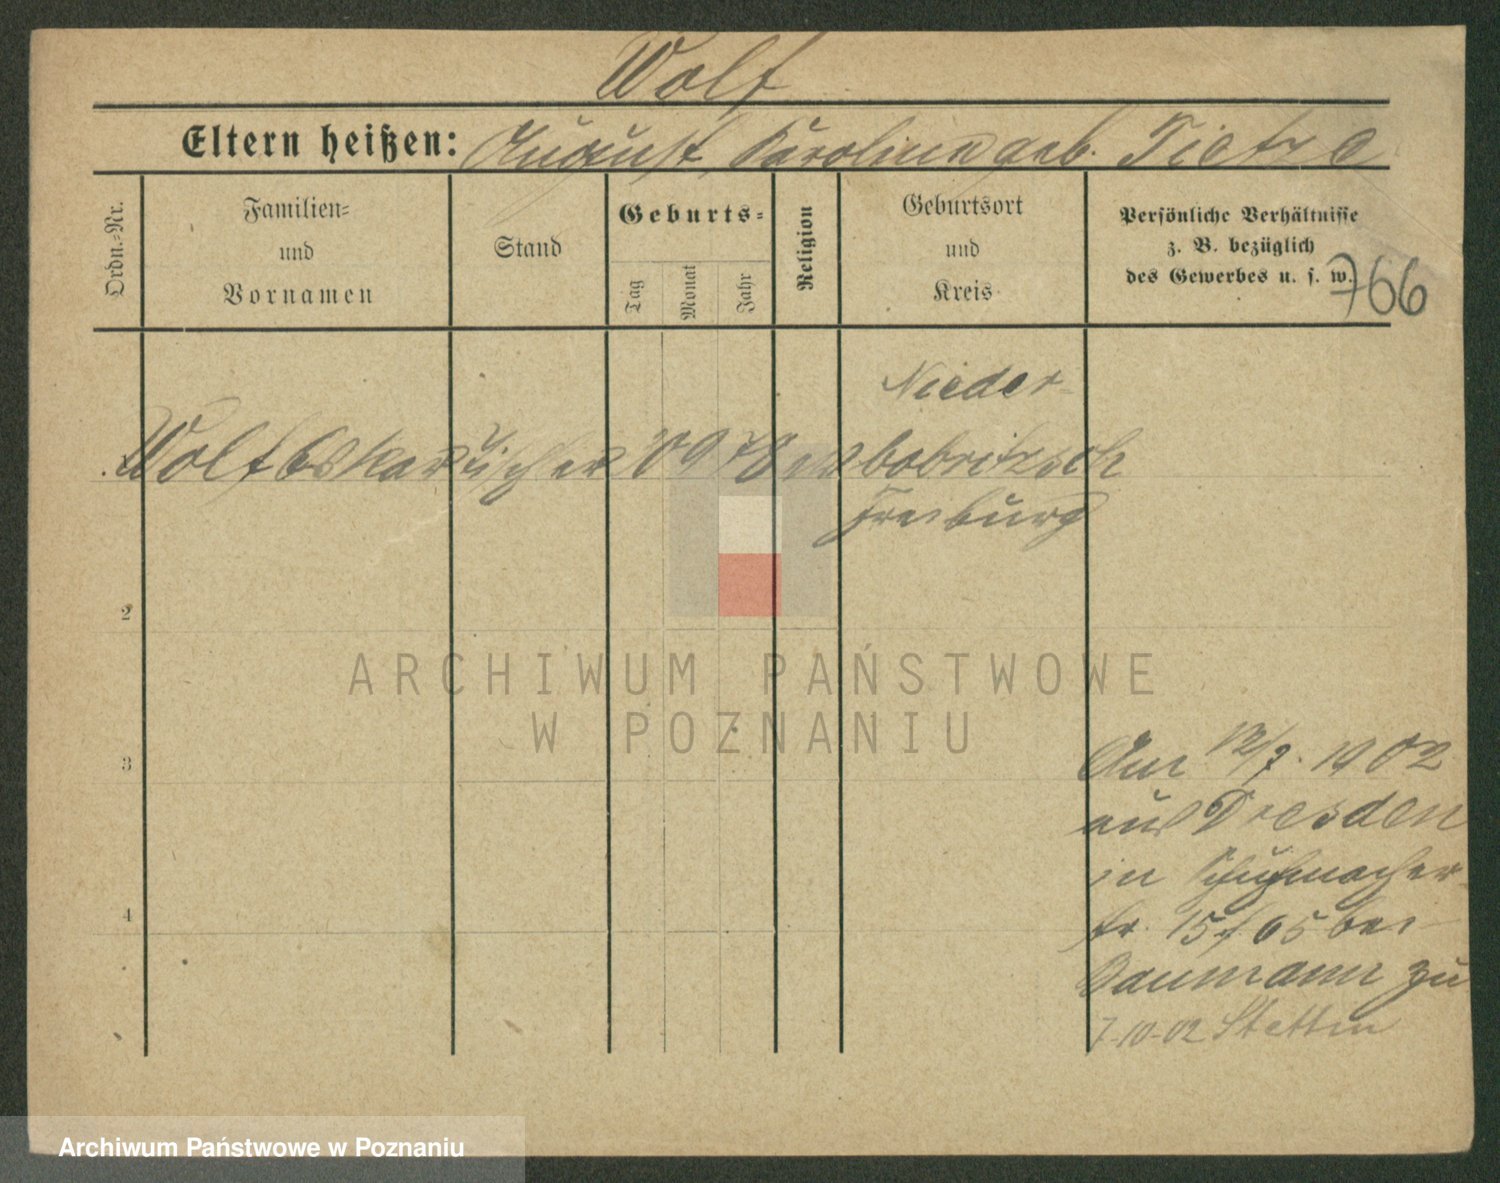 Wolf
Eltern heißen: August, Karoline geb. Tietze
Ordn.-Nr.
Familien- und Vornamen
Stand
Geburts-
Tag
Monat
Jahr
Religion
Geburtsort und Kreis
Persönliche Verhältnisse
z. B. bezüglich
des Gewerbes u. s. w.
766
Nieder-
Wolf Oskar Tischler 9 78 ev bobritzsch
Freiburg
2
3
4
Am 12/7. 1902
aus Dresden
in Schuhmacher
str. 15 bei
Baumann zu
7-10-02 Stettin
ARCHIWUM PAŃSTWOWE
W POZNANIU
Archiwum Państwowe w Poznaniu